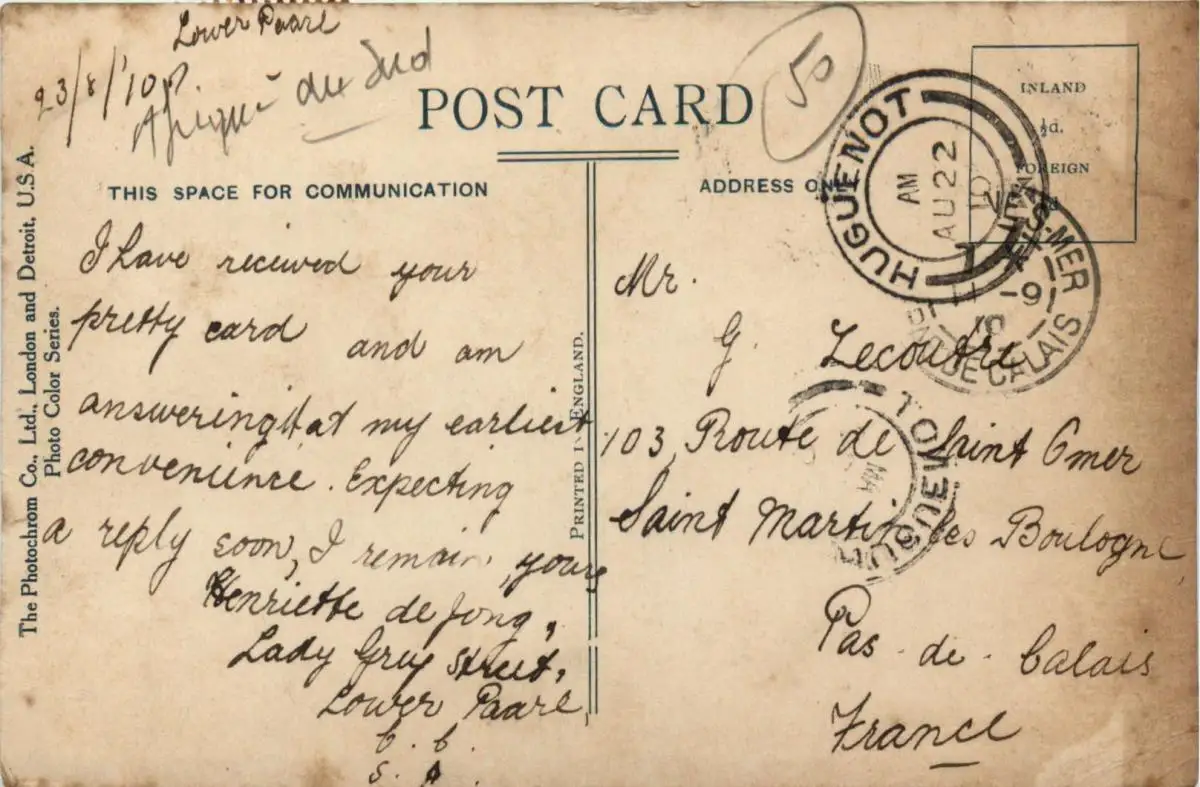 Lower Paarl
23/8/'10
Afrique du Sud
50
POST CARD
THIS SPACE FOR COMMUNICATION
ADDRESS ON
INLAND
½d.
FOREIGN
HUGUENOT
AM
AU 22
10
S-MER
-9
10
PAS DE CALAIS
HUGUENOT
The Photochrom Co., Ltd., London and Detroit, U.S.A.
Photo Color Series.
PRINTED IN ENGLAND.
I have recieved your
pretty card and am
answering it at my earliest
convenience. Expecting
a reply soon, I remain, yours
Henriette de Jong,
Lady Grey Street,
Lower Paarl,
C. C.
S. A.
Mr.
G. Lecoutre
103, Route de Saint Omer
Saint Martin les Boulogne
Pas-de-Calais
France